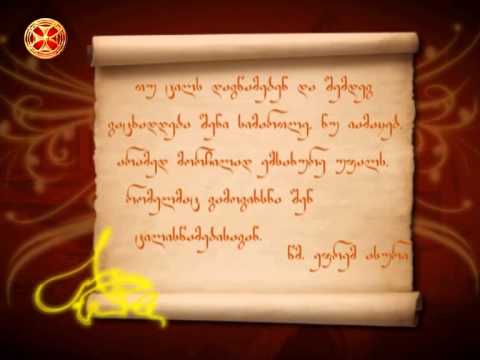 თუ ცილს დაგწამებენ და შემდეგ
გაცხადდება შენი სიმართლე, ნუ იამაყებ,
არამედ მორჩილად ემსახურე უფალს,
რომელმაც გამოგიხსნა შენ
ცილისწამებისაგან.
წმ. ეფრემ ასური